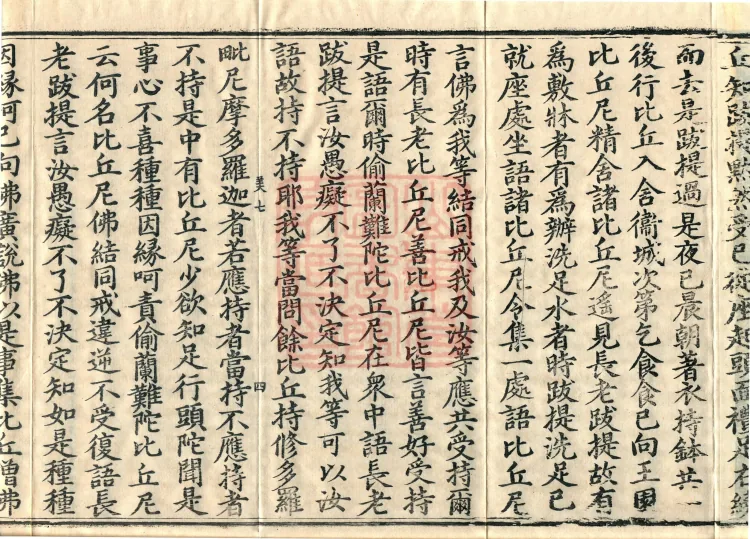 丘知跋提默然受已從座起頭面禮足右繞
而去是跋提過是夜已晨朝著衣持鉢共一
後行比丘入舍衞城次第乞食食已向王園
比丘尼精舍諸比丘尼遙見長老跋提故有
爲敷牀者有爲辦洗足水者時跋提洗足已
就座處坐語諸比丘尼令集一處語比丘尼
言佛爲我等結同戒我及汝等應共受持爾
時有長老比丘尼善比丘尼皆言善好受持
是語爾時偷蘭難陀比丘尼在衆中語長老
跋提言汝愚癡不了不決定知我等可以汝
語故持不持耶我等當問餘比丘持修多羅
芙七 四
毗尼摩多羅迦者若應持者當持不應持者
不持是中有比丘尼少欲知足行頭陀聞是
事心不喜種種因緣呵責偷蘭難陀比丘尼
云何名比丘尼佛結同戒違逆不受復語長
老跋提言汝愚癡不了不決定知如是種種
因緣呵已向佛廣說佛以是事集比丘僧佛